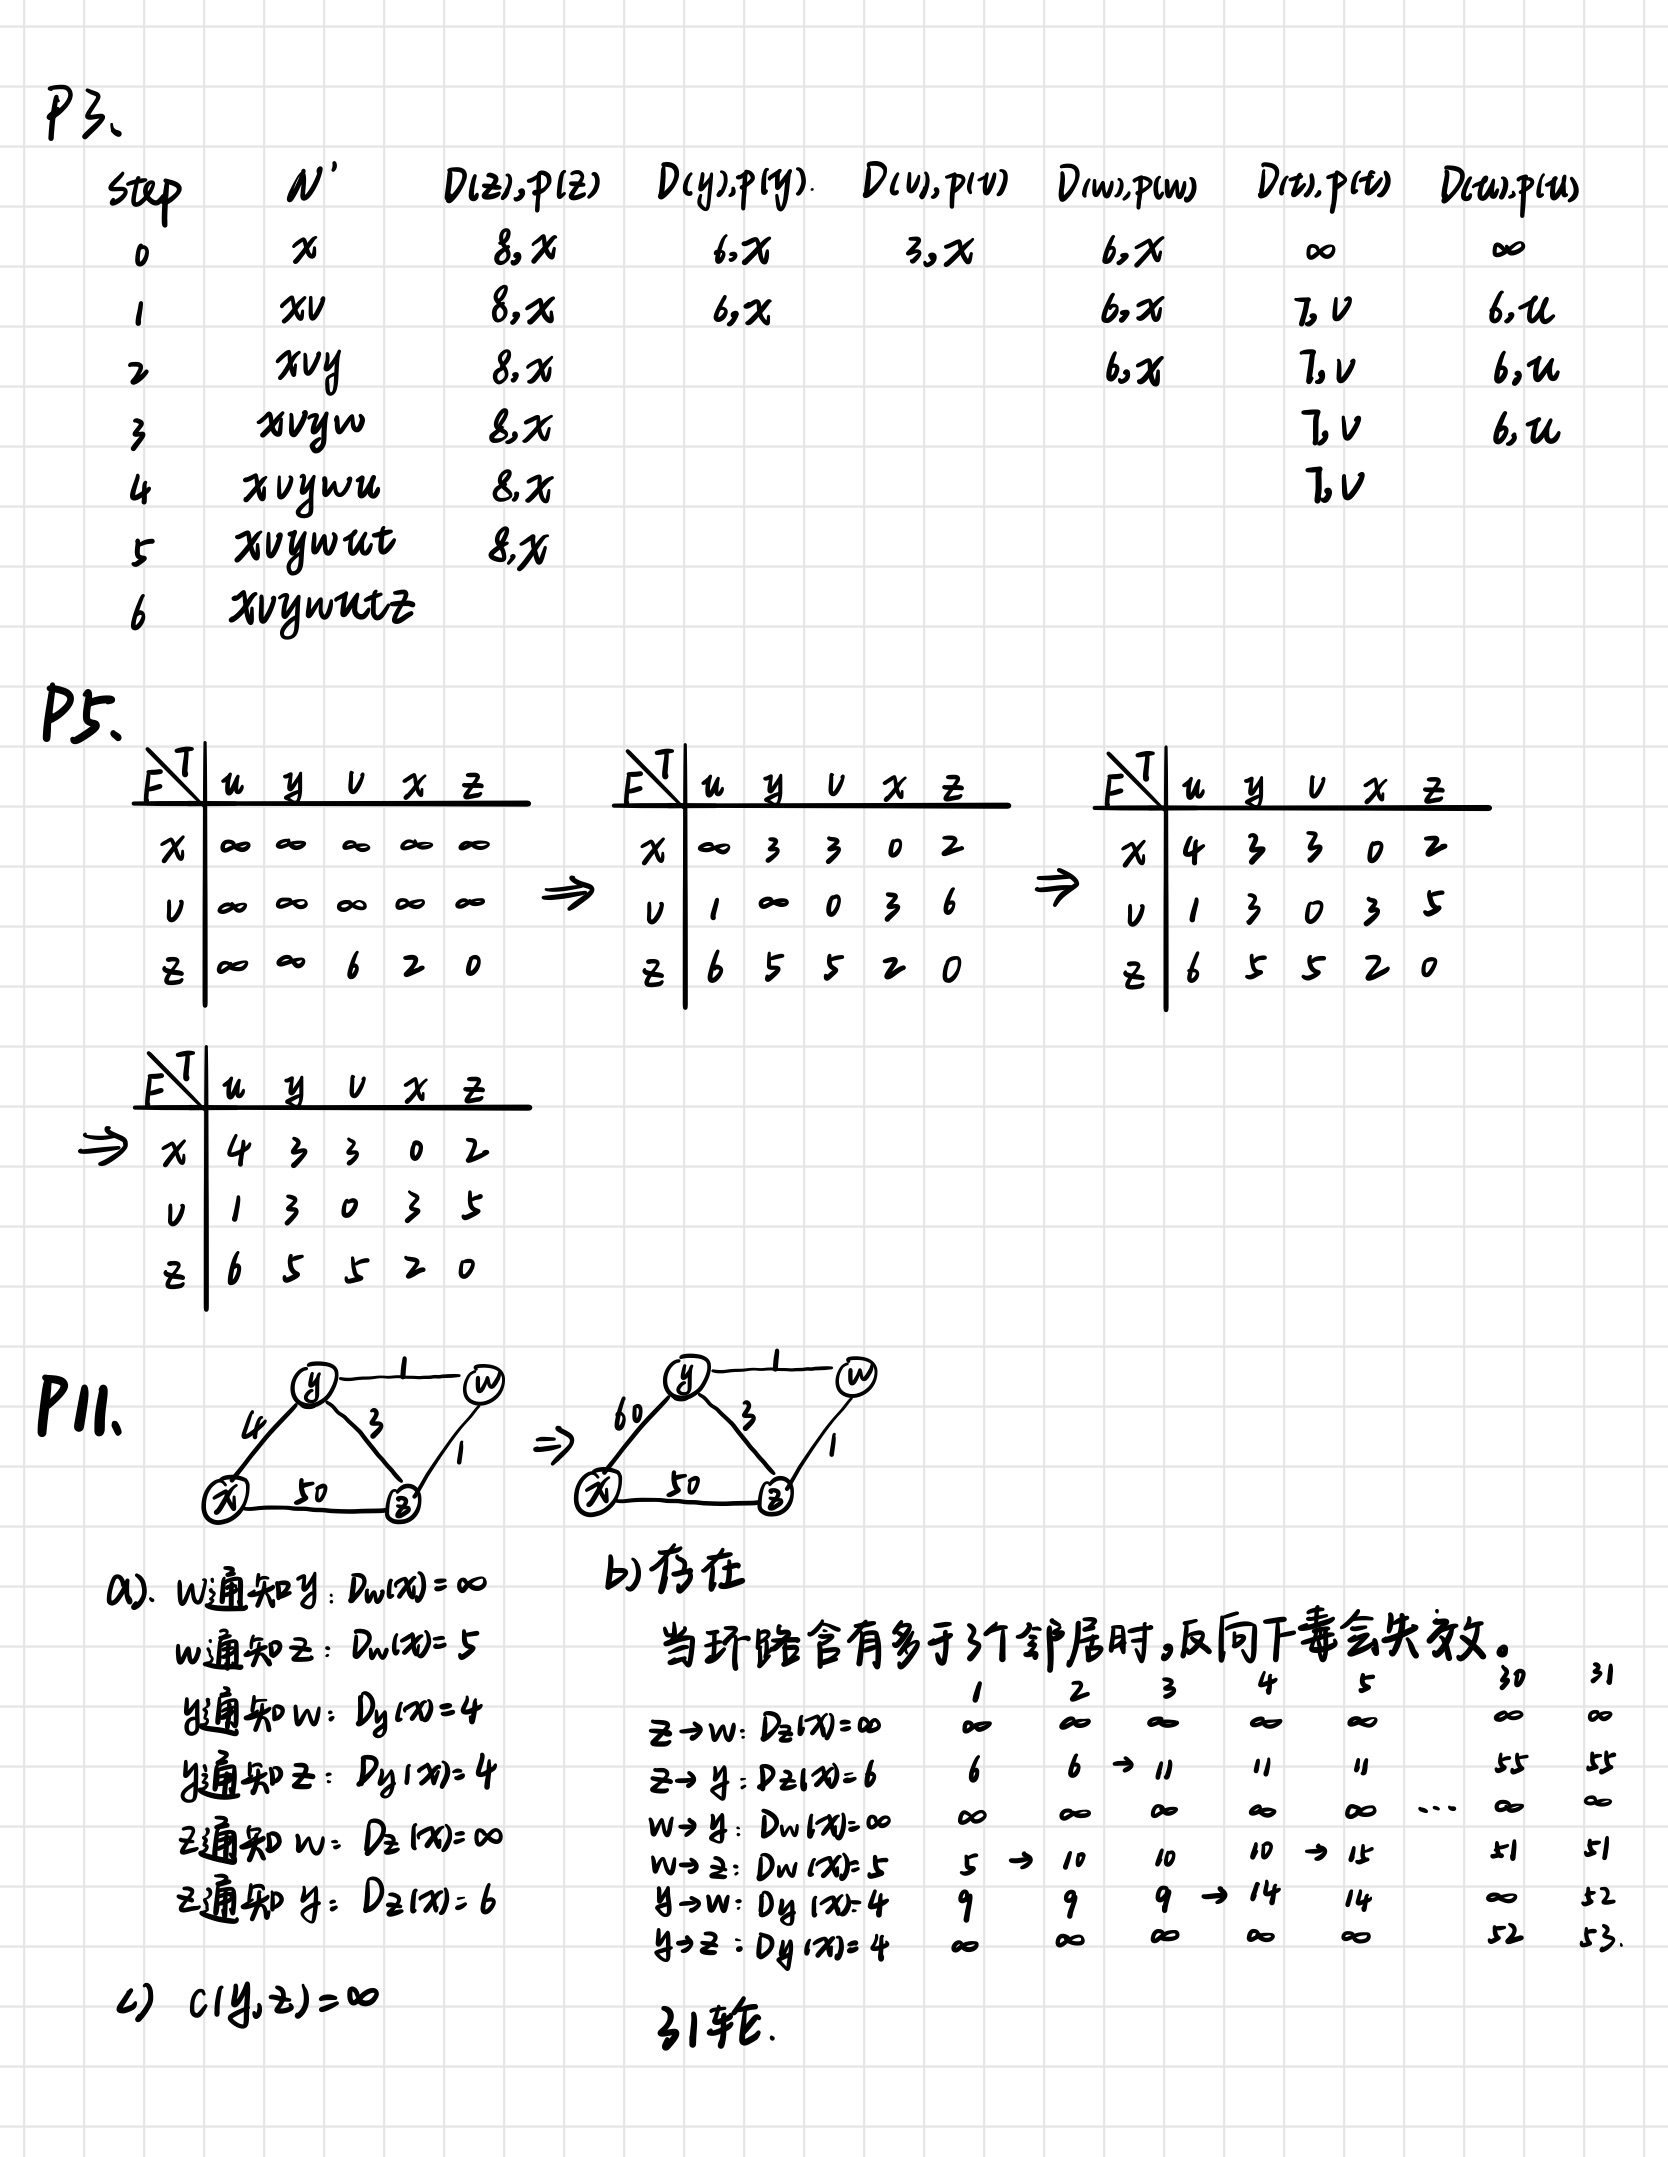 P3、
step N' D(z),p(z) D(y),p(y). D(v),p(v) D(w),p(w) D(t),p(t) D(u),p(u)
0 x 8,x 6,x 3,x 6,x ∞ ∞
1 xv 8,x 6,x 6,x 7,v 6,u
2 xvy 8,x 6,x 7,v 6,u
3 xvyw 8,x 7,v 6,u
4 xvywu 8,x 7,v
5 xvywut 8,x
6 xvywutz
P5、
F T u y v x z
x ∞ ∞ ∞ ∞ ∞
v ∞ ∞ ∞ ∞ ∞
z ∞ ∞ 6 2 0
⇒
F T u y v x z
x ∞ 3 3 0 2
v 1 ∞ 0 3 6
z 6 5 5 2 0
⇒
F T u y v x z
x 4 3 3 0 2
v 1 3 0 3 5
z 6 5 5 2 0
⇒
F T u y v x z
x 4 3 3 0 2
v 1 3 0 3 5
z 6 5 5 2 0
P11、
y 1 w
4 3 1
x 50 z
⇒
y 1 w
60 3 1
x 50 z
a). w通知y: Dw(x)=∞
w通知z: Dw(x)=5
y通知w: Dy(x)=4
y通知z: Dy(x)=4
z通知w: Dz(x)=∞
z通知y: Dz(x)=6
c) c(y,z)=∞
b) 存在
当环路含有多于3个邻居时,反向下毒会失效。
1 2 3 4 5 30 31
z→w: Dz(x)=∞ ∞ ∞ ∞ ∞ ∞ ∞ ∞
z→y: Dz(x)=6 6 6 → 11 11 11 55 55
w→y: Dw(x)=∞ ∞ ∞ ∞ ∞ ∞ ... ∞ ∞
w→z: Dw(x)=5 5 → 10 10 10 → 15 51 51
y→w: Dy(x)=4 9 9 9 → 14 14 ∞ 52
y→z: Dy(x)=4 ∞ ∞ ∞ ∞ ∞ 52 53.
31轮.